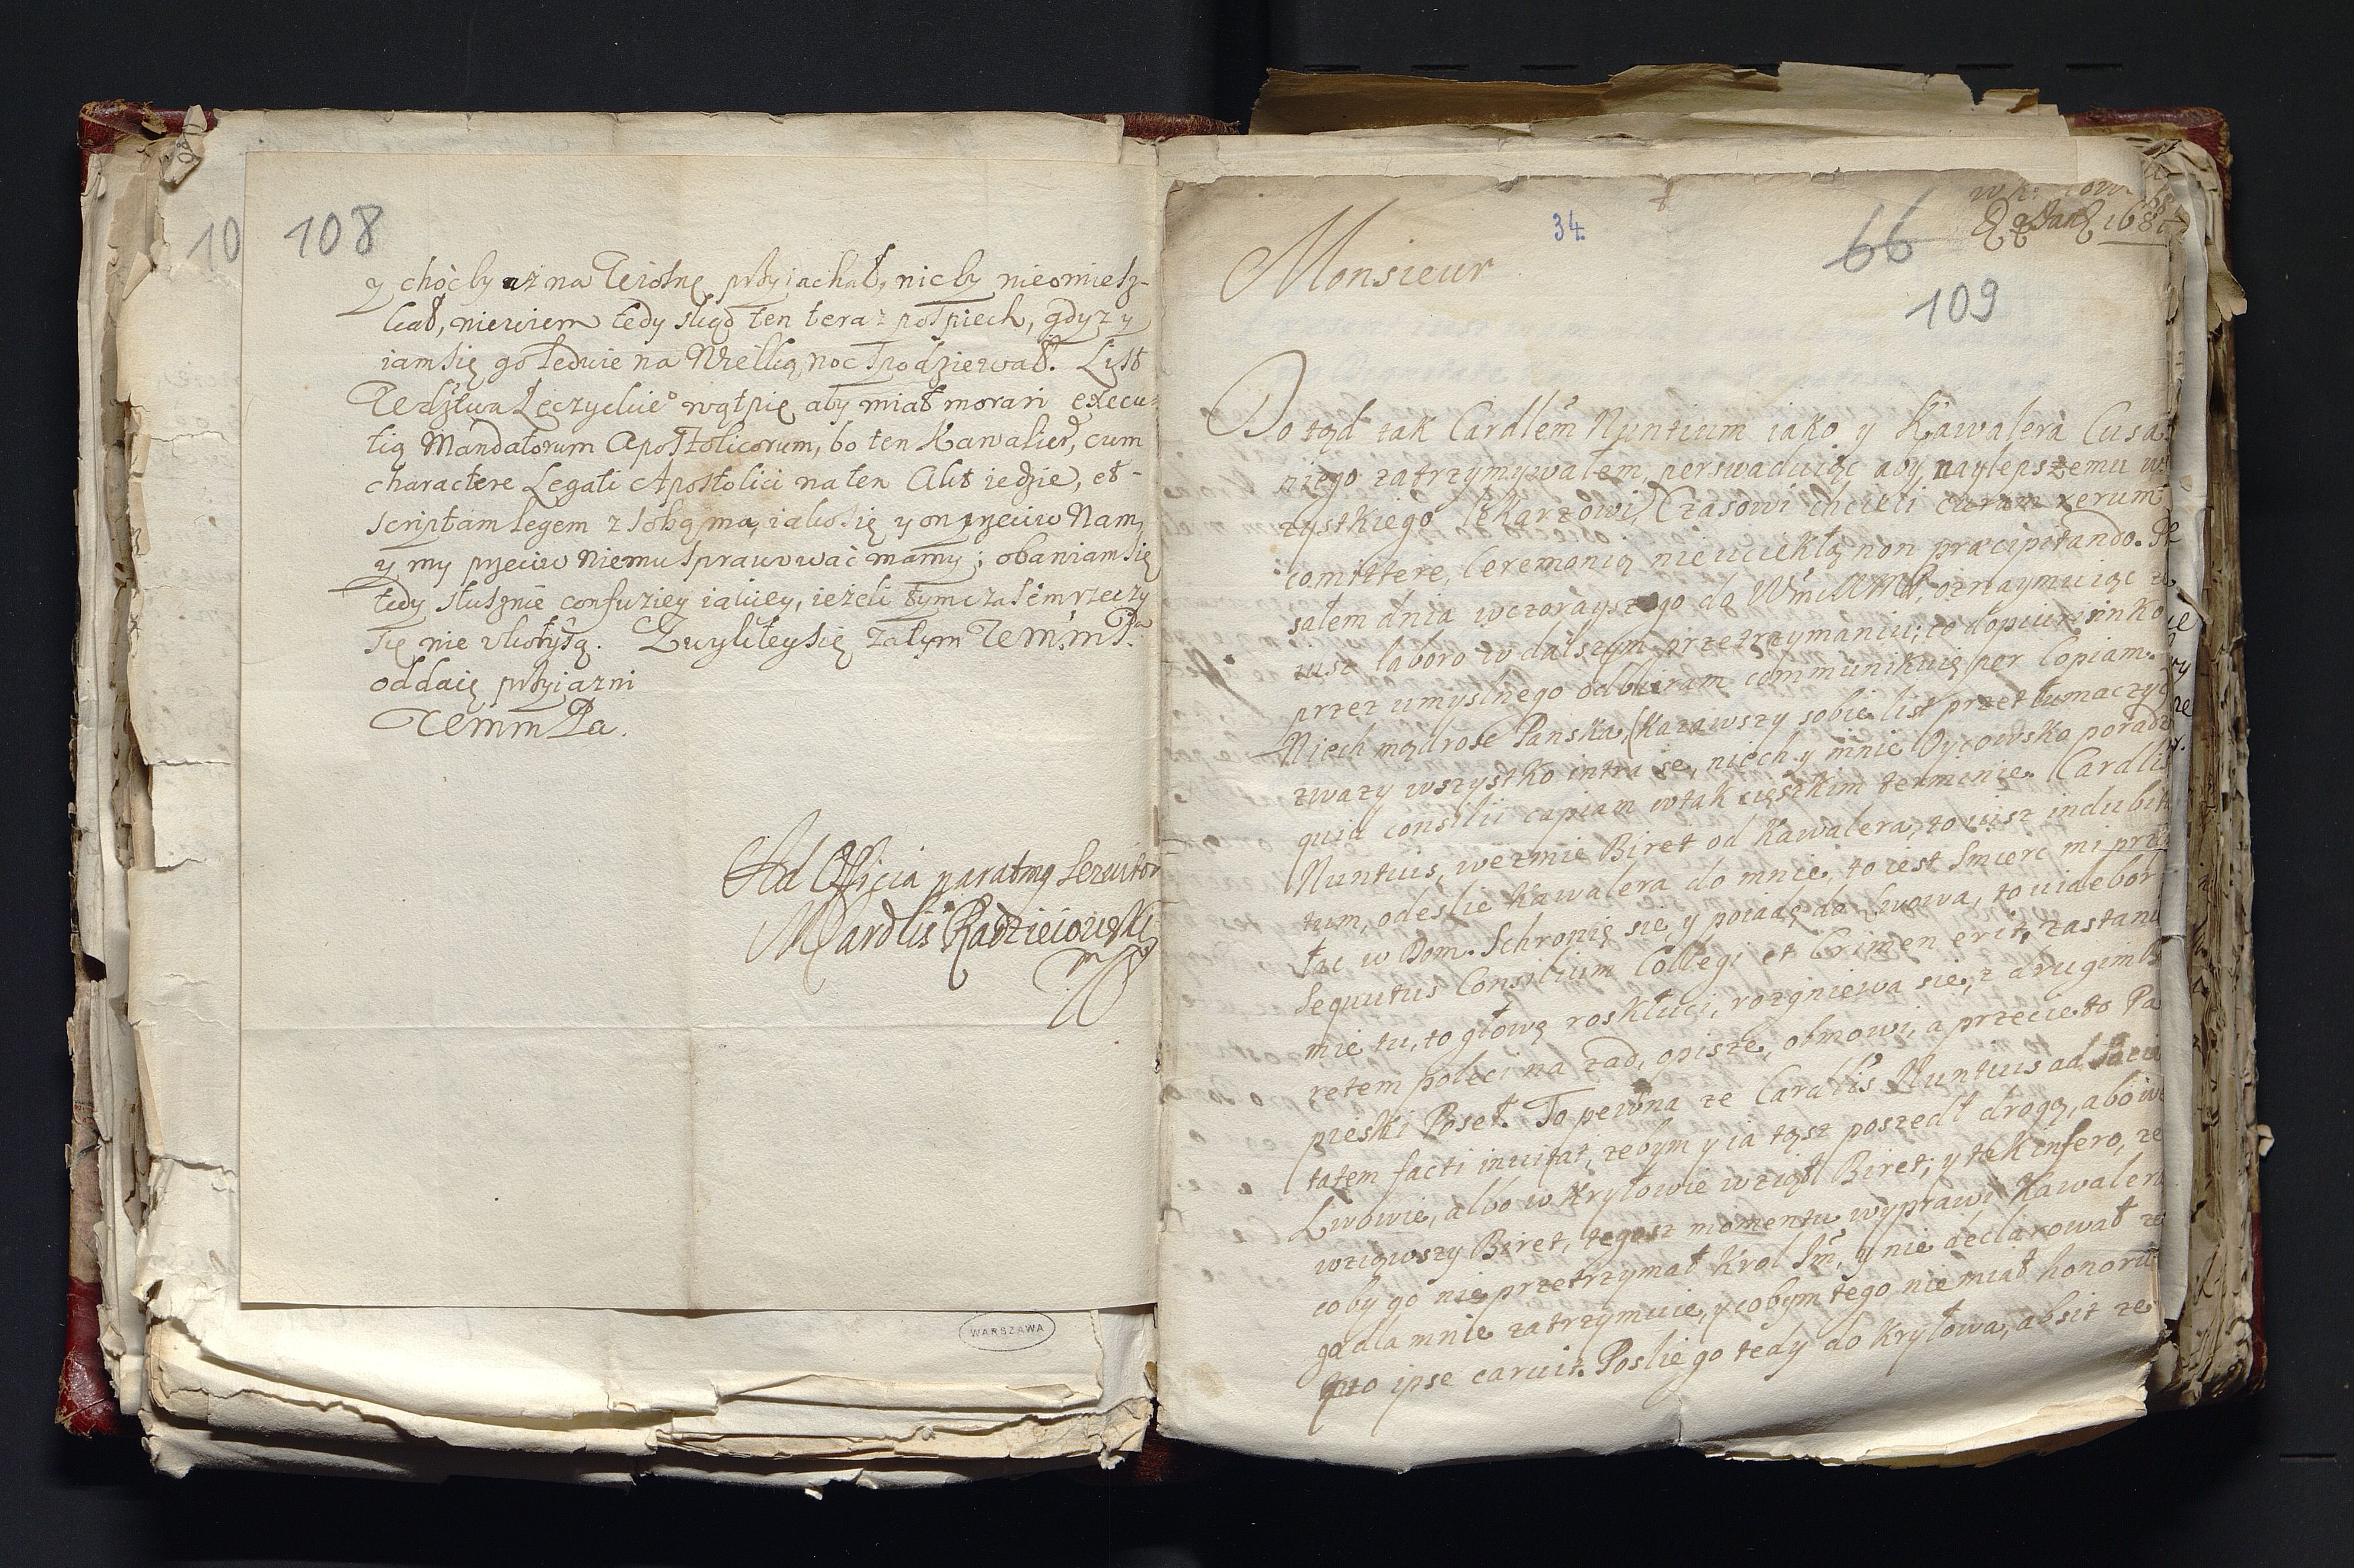 10 108
y choćby aż na Wiosnę przyiachał, nicby nieomiesz-
kał, niewiem tedy skąd ten teraz pospiech, gdyz y
iam się go ledwie na Wielkąnoc spodziewał. List
Łęczyckie° wątpię aby miał morari execu-
tią Mandatorum Apostolicorum, bo ten Kawalier, cum
charactere Legati Apostolici na ten Akt iedzie, et
scriptam legem z sobą ma, iako się y on przeciw Nam,
y my przeciw Niemu sprawować mamy; obawiam się
tedy słusznie confuziey iakiey, ieżeli tym czasem rzeczy
się nie vłożyłą. Zwykłey się zatym
oddaię przyiazni
Ad Officia paratmg servitor
MCardlis Radzieiowski
mp
WARSZAWA
34
66
Jan 1687
109
Monsieur
Dotąd tak Cardlem Nuntium iako y Kawalera Cusa
niego zatrzymywałem, perswaduiąc aby naylepszemu w
zystkiego lekarzowi, Czasowi chcieli curam rerum
comittere, Ceremonią nieuciekłą non præcipitando.
sałem dnia wczorayszego do oznaymuiąc z
iusz laboro w dalszym przetrzymaniu; co dopiero
przez umyslnego odbieram communikuię per Copiam.
Niech mądrosc Panska, (Kazawszy sobie list przetłumaczyc
zwazy wszystko intra se, niech y mnie Oycowska poradz
quid consilii capiam w tak cięszkim terminie. Cardlis
Nuntius, wezmie Biret od Kawalera, to iusz indubit
tum, odeslie Kawalera do mnie, to iest smierc mi przy
słac w Dom. Schronię się y poiadę do Lwowa, to videbor
sequutus Consilium Collegi et Crimen erit, zastani
mie tu, to głowę roskłuci, rozgniewa się, z drugim Bi
retem poleci na zad, opisze, obmowi, a przecie to Pa
pieski Poseł. To pewna ze Cardlis Nuntius ad
tatem facti invitat, zebym y ia tąsz poszedł drogą, abo we
Lwowie, albo w Kryłowie wziął Biret; y tak infero, ze
wziąwszy Biret, tegosz momentu wyprawi Kawalera
coby go nie przetrzymał Krol Jm, y nie declarował ze
go dla mnie zatrzymuie, y cobym tego nie miał honoru
quo ipse caruit. Poslie go tedy do Kryłowa, absit ze